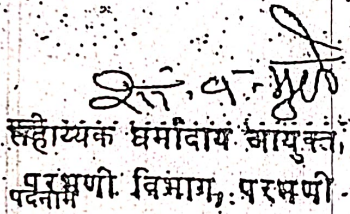 सहाय्यक धर्मादाय आयुक्त,
परभणी विभाग, परभणी.
पदनाम